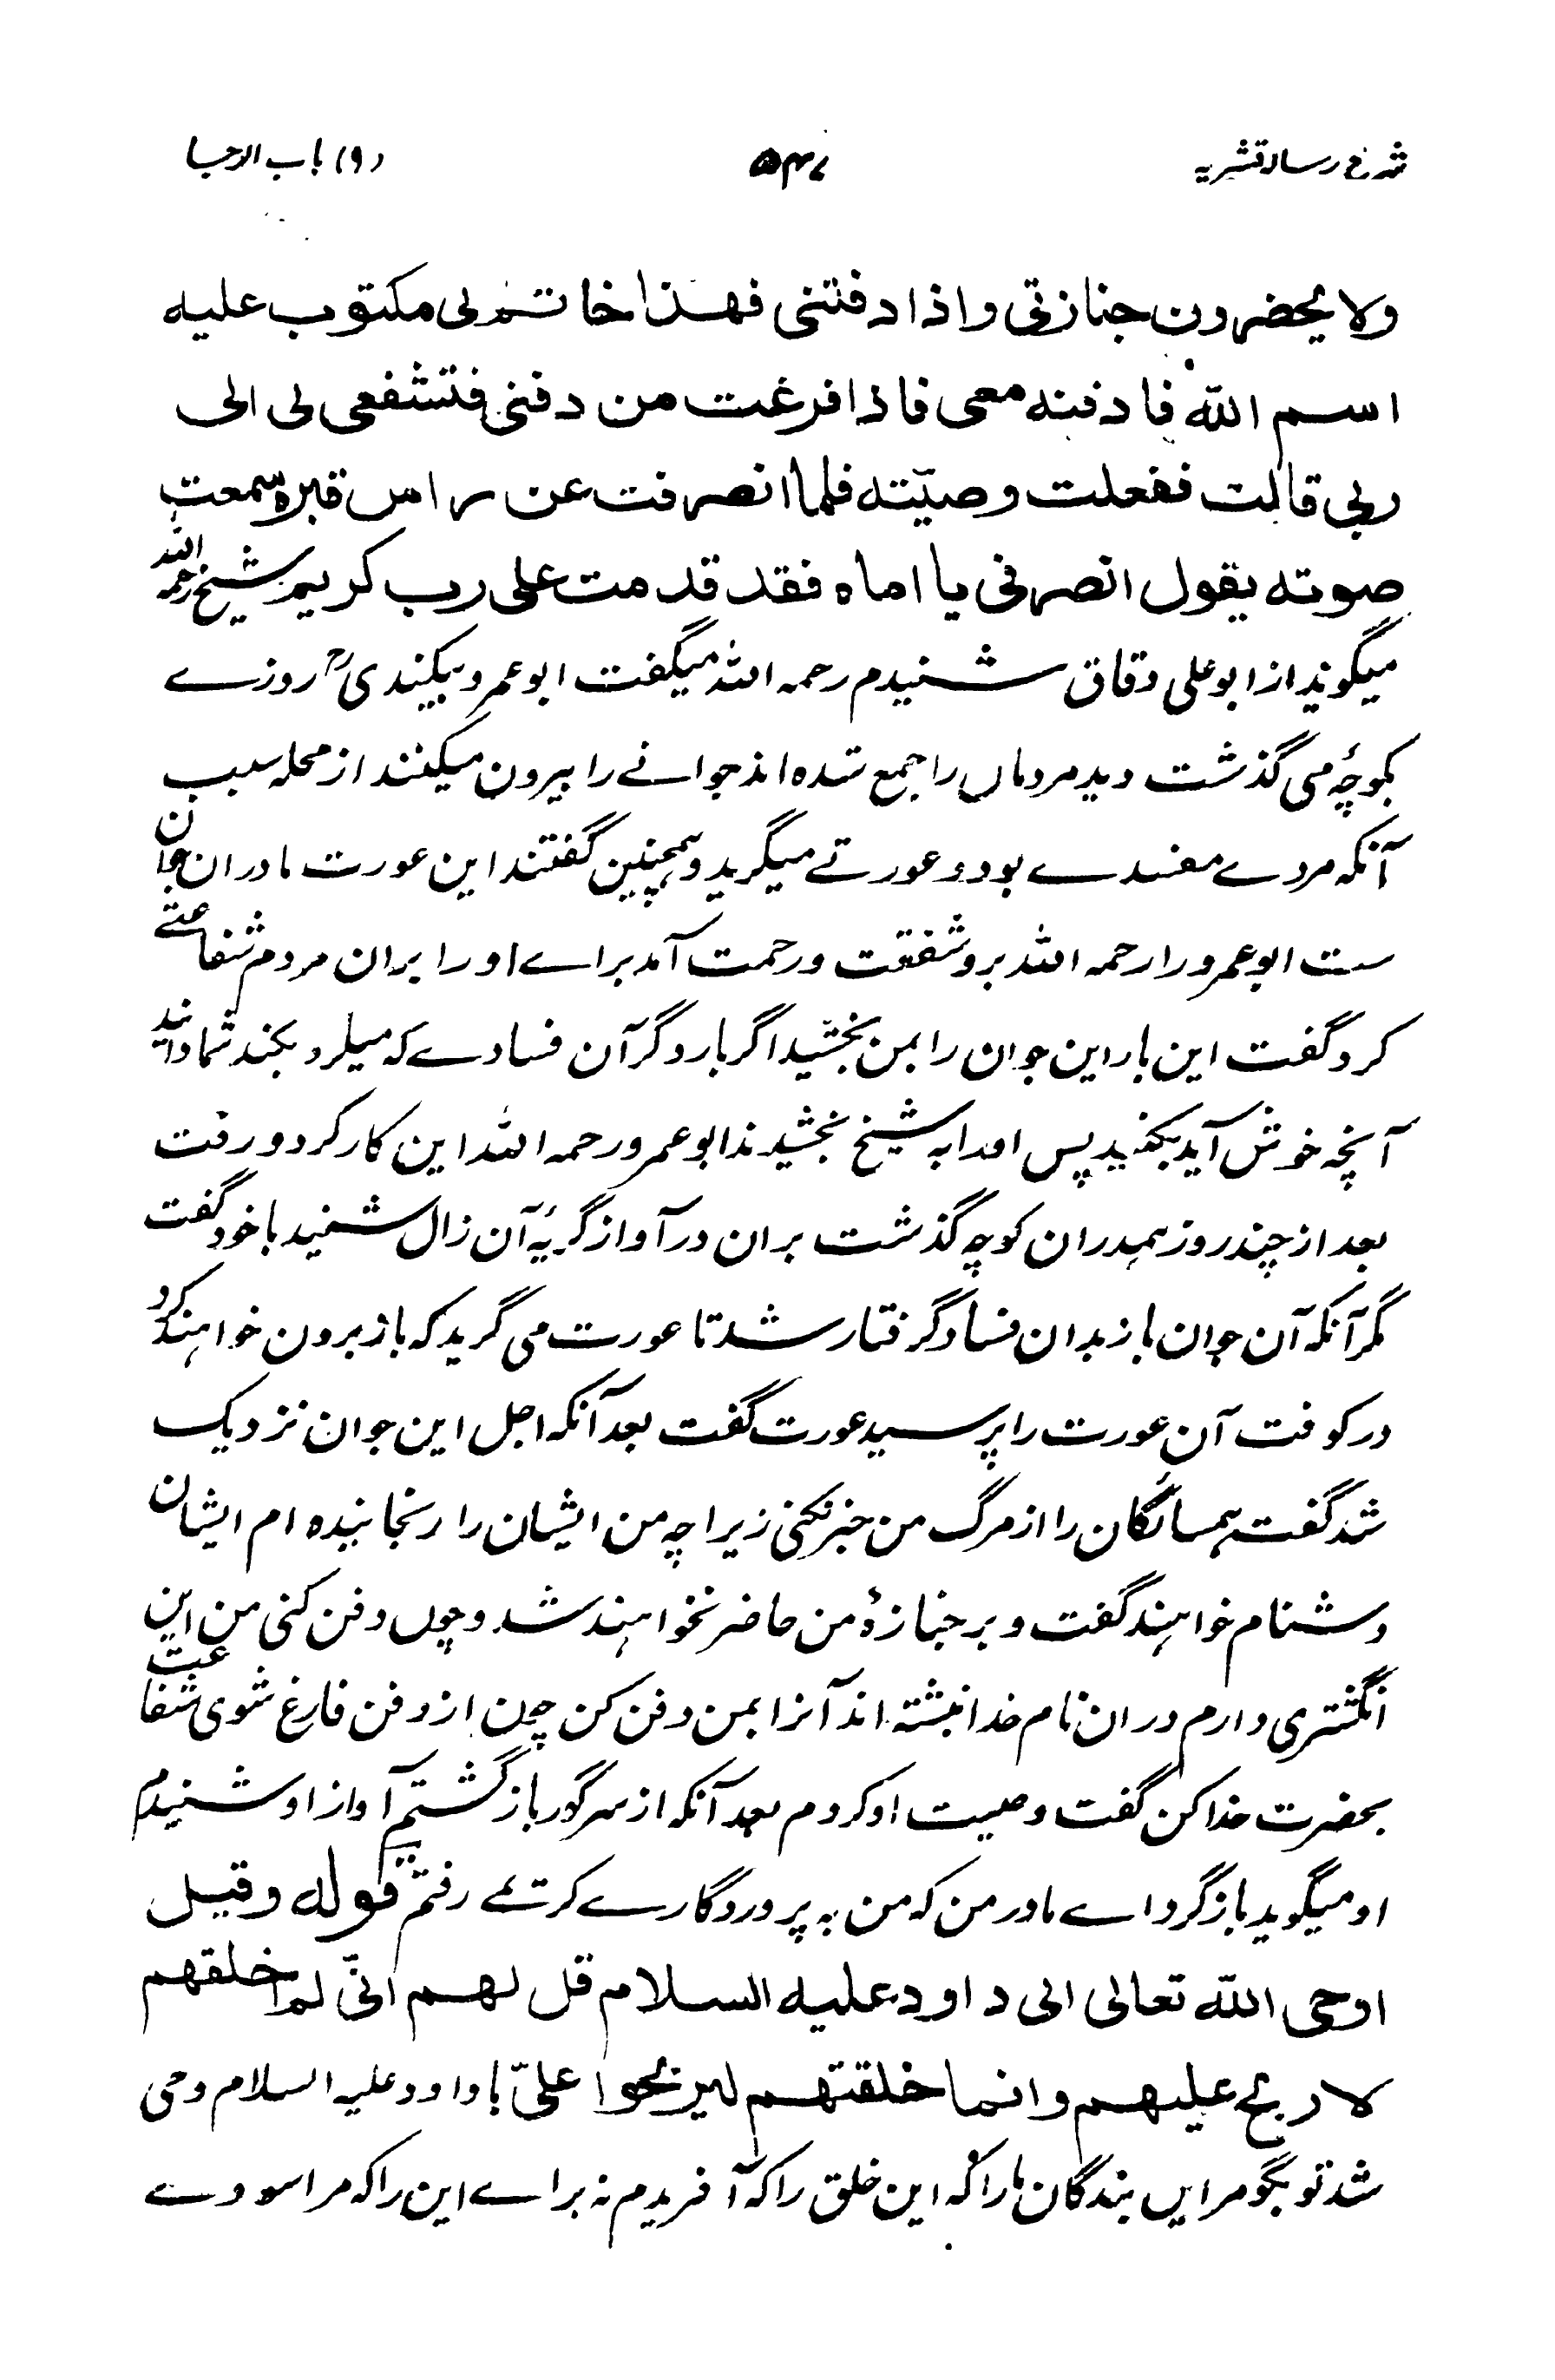 شرح رسالہ قشیریہ ۵۴۷ (۹) باب الرجا
ولا یحضرون جنازتی واذا دفنتنی فھذا خاتم لی مکتوب علیه
اسم اللہ فادفنه معی فاذا فرغت من دفنی فتشفعی لی الی
ربی قالت ففعلت وصیّته فلما انصرفت عن راس قبره سمعت
صوته یقول انصرفی یا اماه فقد قدمت علی رب کریم شیخ رحمه اللہ
میگویند از ابو علی دقاق شنیدم رحمه اللہ میگفت ابو عمرو بیکندیؒ روزے
بکوچۂ می گذشت دید مردماں را جمع شده اند جوانے را بیرون میکنند از محله سبب
آنکه مردے مفسدے بود و عورتے میگرید وهمچنین گفتند این عورت مادر ان جوان
ست ابو عمرو را رحمه اللہ برو شفقت ورحمت آمد براے او را بران مردم شفاعتے
کرد گفت این بار این جوان را بمن بخشید اگر بار دگر آن فسادے که میکرد بکند شما دانید
آنچه خوش آید بکنید پس او را به شیخ بخشیدند ابو عمرو رحمه اللہ این کار کرد و رفت
بعد از چند روز همدران کوچه گذشت بران در آواز گریۂ آن زال شنید با خود گفت
مگر آنکه آن جوان باز بدان فساد گرفتار شد تا عورت می گرید که باز برون خواهند کرد
در کوفت آن عورت را پرسید عورت گفت بعد آنکه اجل این جوان نزدیک
شد گفت همسائگان را از مرگ من خبر نکنی زیرا چه من ایشان را رنجانیده ام ایشان
دشنام خواهند گفت و بر جنازۂ من حاضر نخواهند شد و چوں دفن کنی من این
انگشتری دارم دران نام خدا نبشته اند آنرا بمن دفن کن چون از دفن فارغ شوی شفاعت
بحضرت خدا کن گفت وصیت او کردم بعد آنکه از سر گور باز گشتم آواز او شنیدم
او میگوید باز گرد اے مادر من که من به پروردگارے کرتمے رفتم قوله وقیل
اوحی اللہ تعالی الی داود علیه السلام قل لهم انّی لم اخلقهم
لا ربح علیهم وانما خلقتهم لیربحوا علیّ با داود علیه السلام وحی
شد تو بگو مر ایں بندگان مارا که این خلق را که آفریدم نه براے این را که مرا سودے